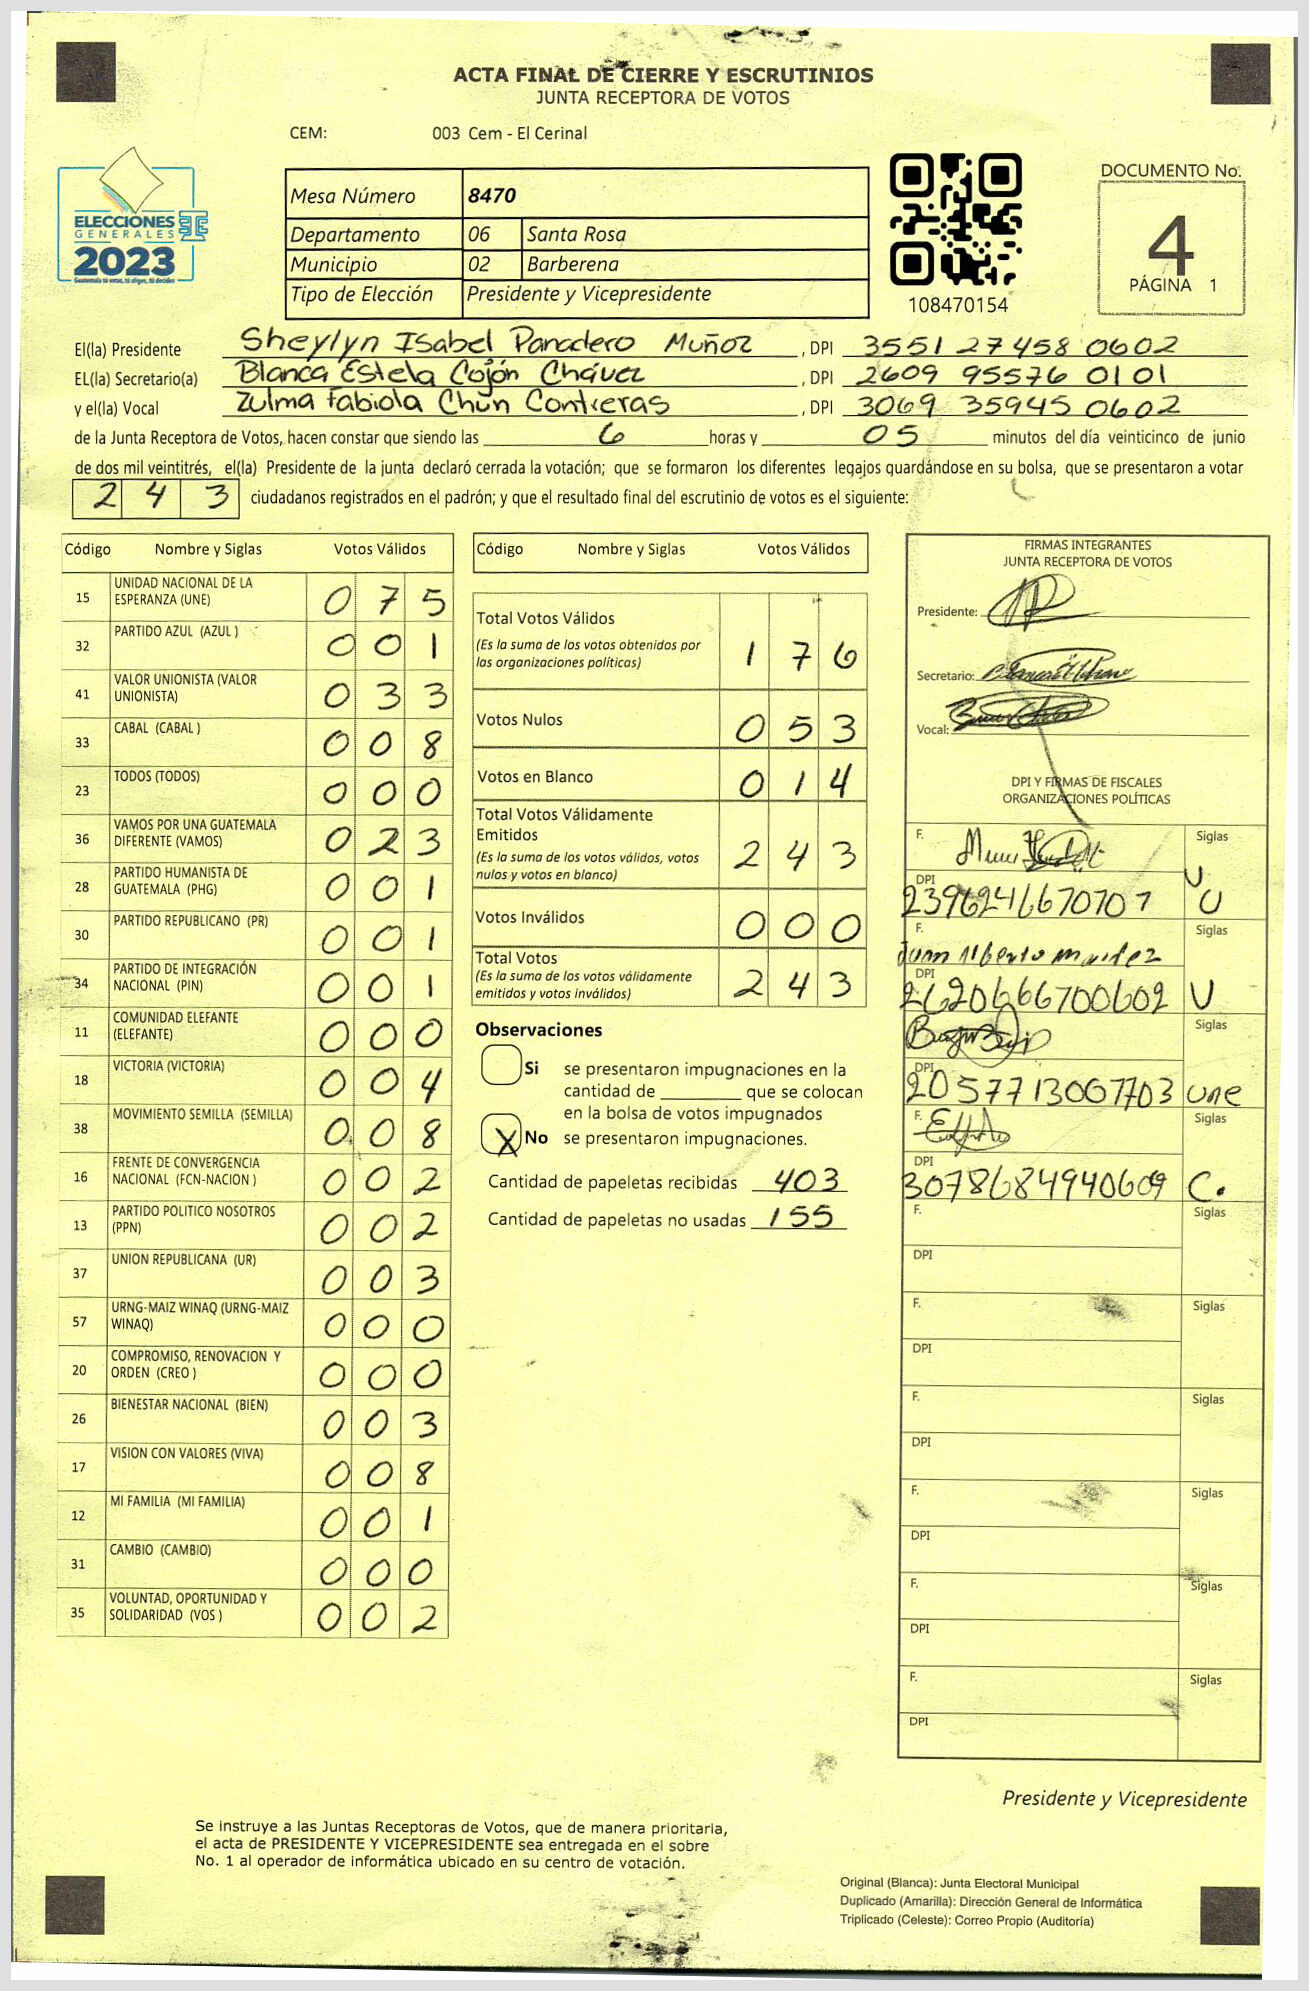 ACTA FINAL DE CIERRE Y ESCRUTINIOS
JUNTA RECEPTORA DE VOTOS
CEM: 003 Cem - El Cerinal
ELECCIONES
GENERALES
2023
Mesa Número 8470
Departamento 06 Santa Rosa
Municipio 02 Barberena
Tipo de Elección Presidente y Vicepresidente
108470154
DOCUMENTO No.
4
PÁGINA 1
El(la) Presidente Sheylyn Isabel Panadero Muñoz , DPI 3551 27458 0602
EL(la) Secretario(a) Blanca Estela Cojón Chávez , DPI 2609 95576 0101
y el(la) Vocal Zulma Fabiola Chun Contreras , DPI 3069 35945 0602
de la Junta Receptora de Votos, hacen constar que siendo las 6 horas y 05 minutos del día veinticinco de junio
de dos mil veintitrés, el(la) Presidente de la junta declaró cerrada la votación; que se formaron los diferentes legajos guardándose en su bolsa, que se presentaron a votar
243 ciudadanos registrados en el padrón; y que el resultado final del escrutinio de votos es el siguiente:
Código Nombre y Siglas Votos Válidos
15 UNIDAD NACIONAL DE LA ESPERANZA (UNE) 075
32 PARTIDO AZUL (AZUL ) 001
41 VALOR UNIONISTA (VALOR UNIONISTA) 033
33 CABAL (CABAL ) 008
23 TODOS (TODOS) 000
36 VAMOS POR UNA GUATEMALA DIFERENTE (VAMOS) 023
28 PARTIDO HUMANISTA DE GUATEMALA (PHG) 001
30 PARTIDO REPUBLICANO (PR) 001
34 PARTIDO DE INTEGRACIÓN NACIONAL (PIN) 001
11 COMUNIDAD ELEFANTE (ELEFANTE) 000
18 VICTORIA (VICTORIA) 004
38 MOVIMIENTO SEMILLA (SEMILLA) 008
16 FRENTE DE CONVERGENCIA NACIONAL (FCN-NACION ) 002
13 PARTIDO POLITICO NOSOTROS (PPN) 002
37 UNION REPUBLICANA (UR) 003
57 URNG-MAIZ WINAQ (URNG-MAIZ WINAQ) 000
20 COMPROMISO, RENOVACION Y ORDEN (CREO ) 000
26 BIENESTAR NACIONAL (BIEN) 003
17 VISION CON VALORES (VIVA) 008
12 MI FAMILIA (MI FAMILIA) 001
31 CAMBIO (CAMBIO) 000
35 VOLUNTAD, OPORTUNIDAD Y SOLIDARIDAD (VOS ) 002
Código Nombre y Siglas Votos Válidos
Total Votos Válidos 176
(Es la suma de los votos obtenidos por
las organizaciones políticas)
Votos Nulos 053
Votos en Blanco 014
Total Votos Válidamente
Emitidos 243
(Es la suma de los votos válidos, votos
nulos y votos en blanco)
Votos Inválidos 000
Total Votos 243
(Es la suma de los votos válidamente
emitidos y votos inválidos)
Observaciones
Si se presentaron impugnaciones en la
cantidad de ________ que se colocan
en la bolsa de votos impugnados
X No se presentaron impugnaciones.
Cantidad de papeletas recibidas 403
Cantidad de papeletas no usadas 155
FIRMAS INTEGRANTES
JUNTA RECEPTORA DE VOTOS
Presidente:
Secretario:
Vocal:
DPI Y FIRMAS DE FISCALES
ORGANIZACIONES POLÍTICAS
F. Siglas
DPI 2396246670707 U
F. Juan Alberto Siglas
DPI 2620666700602 U
Siglas
DPI 2057713067703 une
F. Siglas
DPI 3078684940609 C.
F. Siglas
DPI
F. Siglas
DPI
F. Siglas
DPI
F. Siglas
DPI
F. Siglas
DPI
F. Siglas
DPI
Presidente y Vicepresidente
Se instruye a las Juntas Receptoras de Votos, que de manera prioritaria,
el acta de PRESIDENTE Y VICEPRESIDENTE sea entregada en el sobre
No. 1 al operador de informática ubicado en su centro de votación.
Original (Blanca): Junta Electoral Municipal
Duplicado (Amarilla): Dirección General de Informática
Triplicado (Celeste): Correo Propio (Auditoría)